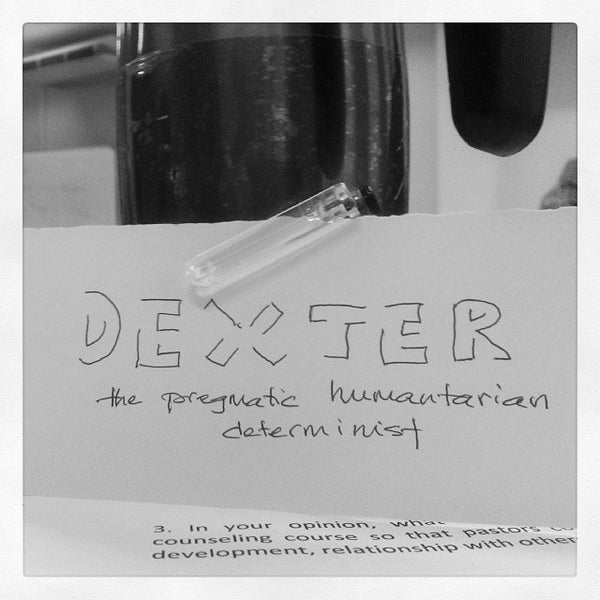 DEXTER
the pregmatic humantarian
determinist
3. In your opinion, what
counseling course so that pastors
development, relationship with other